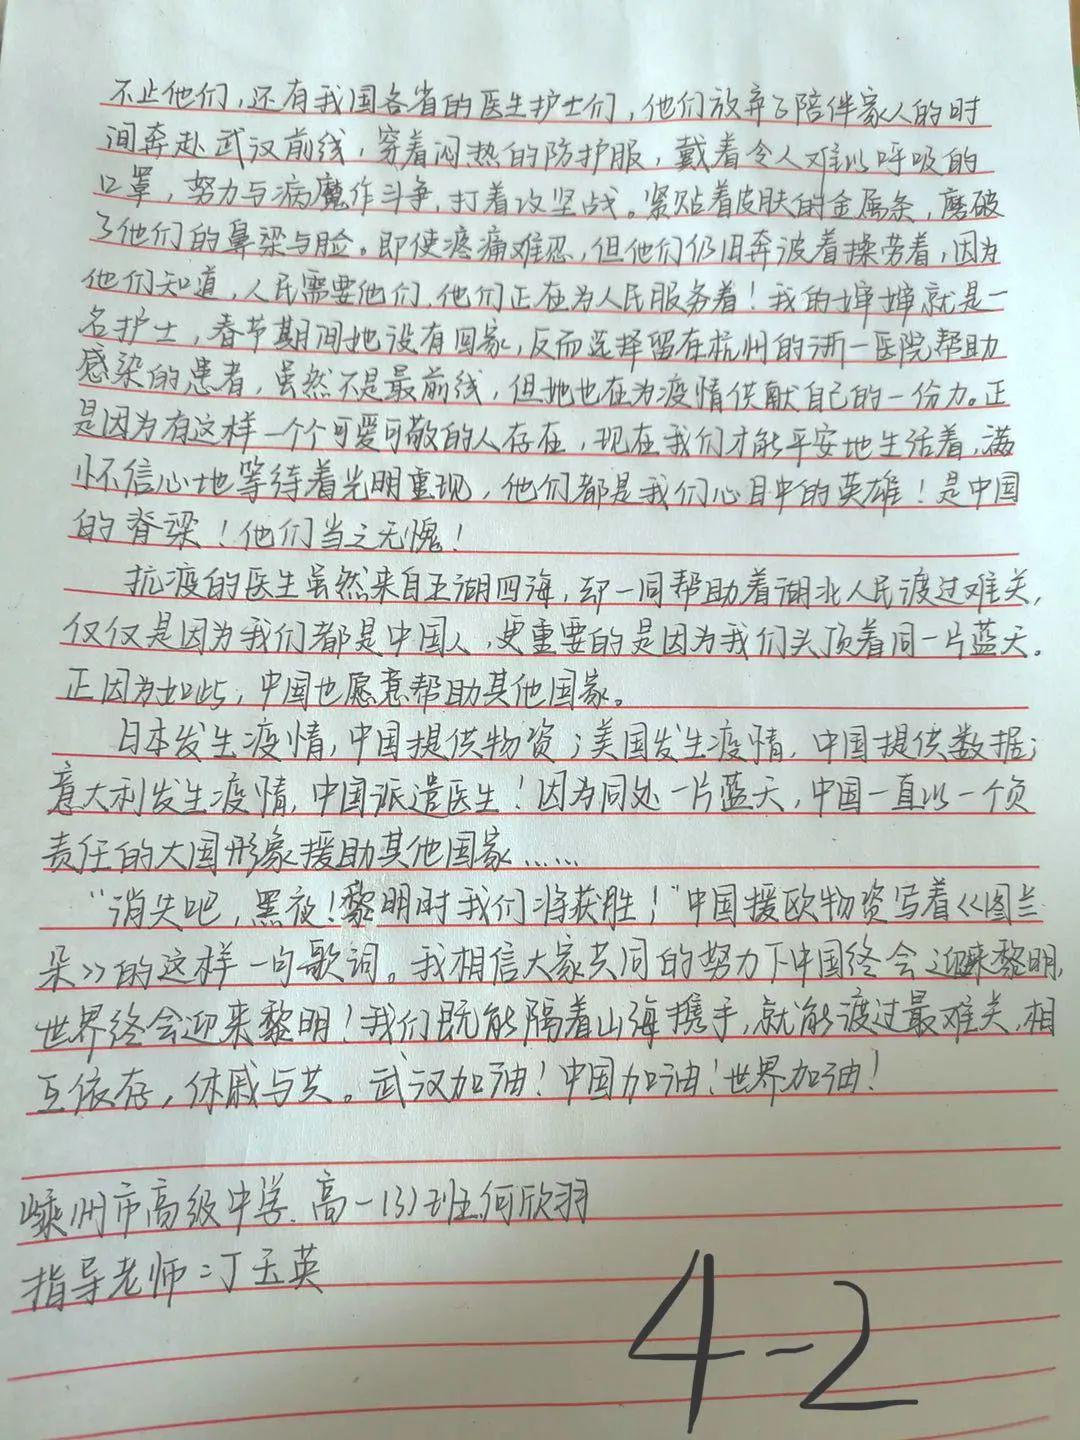 不止他们，还有我国各省的医生护士们，他们放弃了陪伴家人的时
间奔赴武汉前线，穿着闷热的防护服，戴着令人难以呼吸的
口罩，努力与病魔作斗争，打着攻坚战。紧贴着皮肤的金属条，磨破
了他们的鼻梁与脸。即使疼痛难忍，但他们仍旧奔波着操劳着，因为
他们知道，人民需要他们，他们正在为人民服务着！我的婶婶就是一
名护士，春节期间她没有回家，反而选择留在杭州的浙一医院帮助
感染的患者，虽然不是最前线，但她也在为疫情供献自己的一份力。正
是因为有这样一个个可爱可敬的人存在，现在我们才能平安地生活着，满
怀信心地等待着光明重现，他们都是我们心目中的英雄！是中国
的脊梁！他们当之无愧！
抗疫的医生虽然来自五湖四海，却一同帮助着湖北人民渡过难关，
仅仅是因为我们都是中国人，更重要的是因为我们头顶着同一片蓝天。
正因为如此，中国也愿意帮助其他国家。
日本发生疫情，中国提供物资；美国发生疫情，中国提供数据；
意大利发生疫情，中国派遣医生！因为同处一片蓝天，中国一直以一个负
责任的大国形象援助其他国家……
“消失吧，黑夜！黎明时我们将获胜！”中国援欧物资写着《图兰
朵》的这样一句歌词。我相信大家共同的努力下中国终会迎来黎明，
世界终会迎来黎明！我们既能隔着山海携手，就能渡过最难关，相
互依存，休戚与共。武汉加油！中国加油！世界加油！
嵊州市高级中学 高一（3）班何欣羽
指导老师：丁玉英
4-2